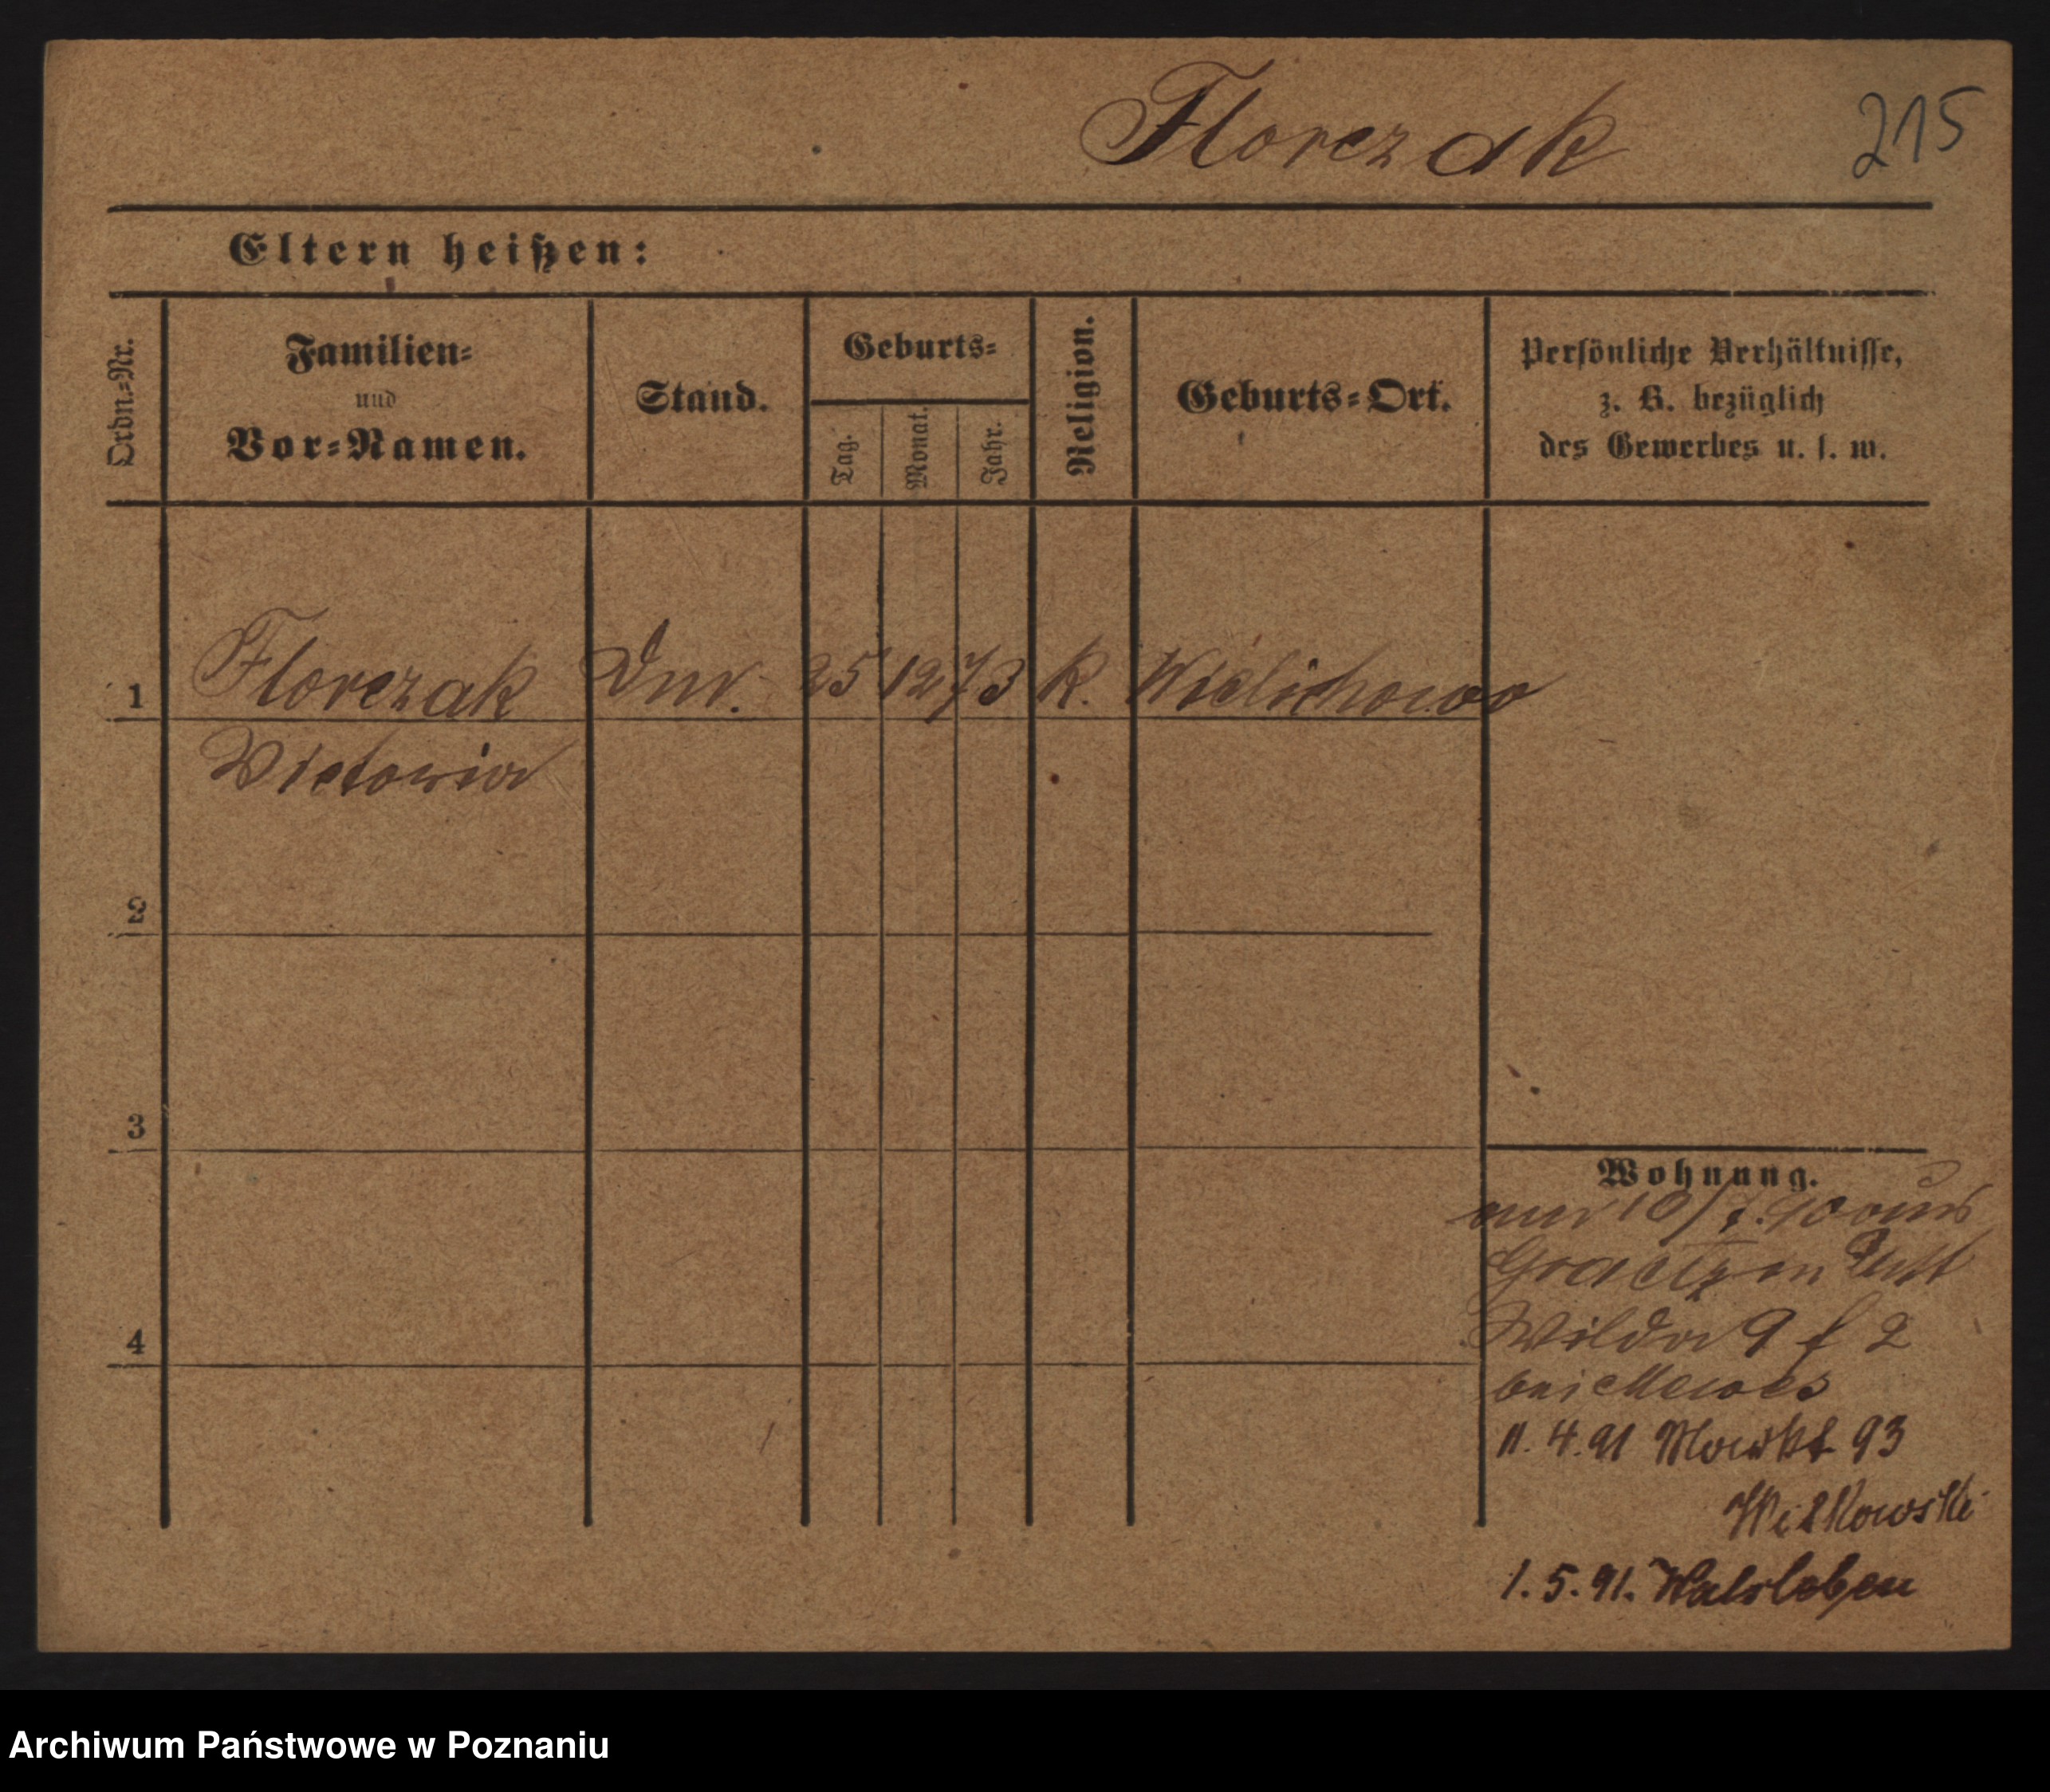 Florczak
215
Eltern heißen:
Ordn.=Nr.
Familien=
und
Vor=Namen.
Stand.
Geburts=
Tag.
Monat.
Jahr.
Religion.
Geburts=Ort.
Persönliche Verhältnisse,
z. B. bezüglich
des Gewerbes u. s. w.
1 Florczak 25 12 73 k. Wielichowo
Victoria
2
3
4
Wohnung.
aus
Graetz
Wilda 9 f 2
bei Mewes
11. 4. 91 Markt 93
Witkowski
1. 5. 91. Walsleben
Archiwum Państwowe w Poznaniu